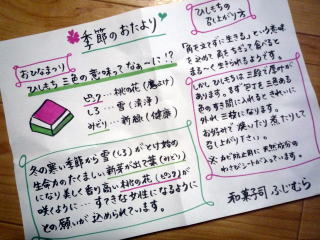 季節のおたより
おひなまつり
ひしもち三色の意味ってなぁ〜に!?
ピンク…桃の花(魔よけ)
しろ…雪(清浄)
みどり…新緑(健康)
冬の寒い季節から雪(しろ)がとけ始め
生命力のたくましい新芽が出て葉(みどり)
になり美しく香り高い桃の花(ピンク)が
咲くように…すてきな女性になるように
との願いが込められています。
ひしもちの
召し上がり方
「角を立てずに生きる」という意味
を込めて角をちぎって食べると
まるーく生きられるそうです。
ひしもちは三段で厚みが
あります。まず包丁を三色ある
色のすき間に入れるときれいに
外れ三枚になります。
お好みで焼いたり煮たりして
お召し上がり下さい。
わさびシートが入っています。
和菓子司 ふじむら